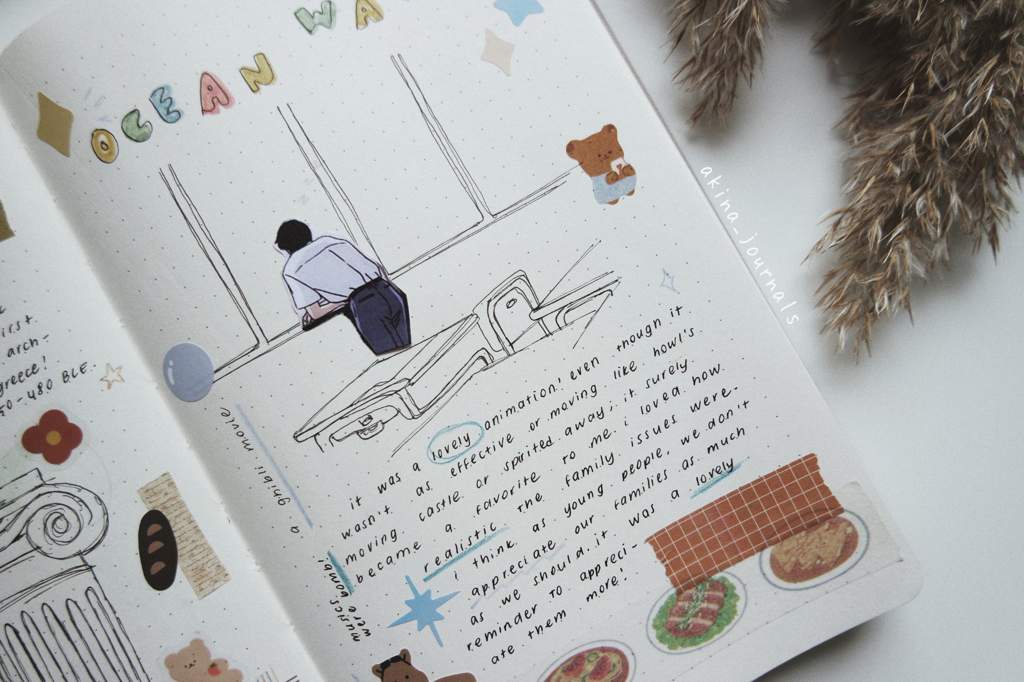 OCEAN WA
it was a lovely animation! even though it
wasn't as effective or moving like howl's
moving castle or spirited away, it surely
became a favorite to me. i loved how
realistic the family issues were.
i think as young people, we don't
appreciate our families as much
as we should. it was a lovely
reminder to appreci-
ate them more!
a ghibli movie
musics
were bomb!
first
arch-
greece!
50-480 B.C.E.
akina_journals